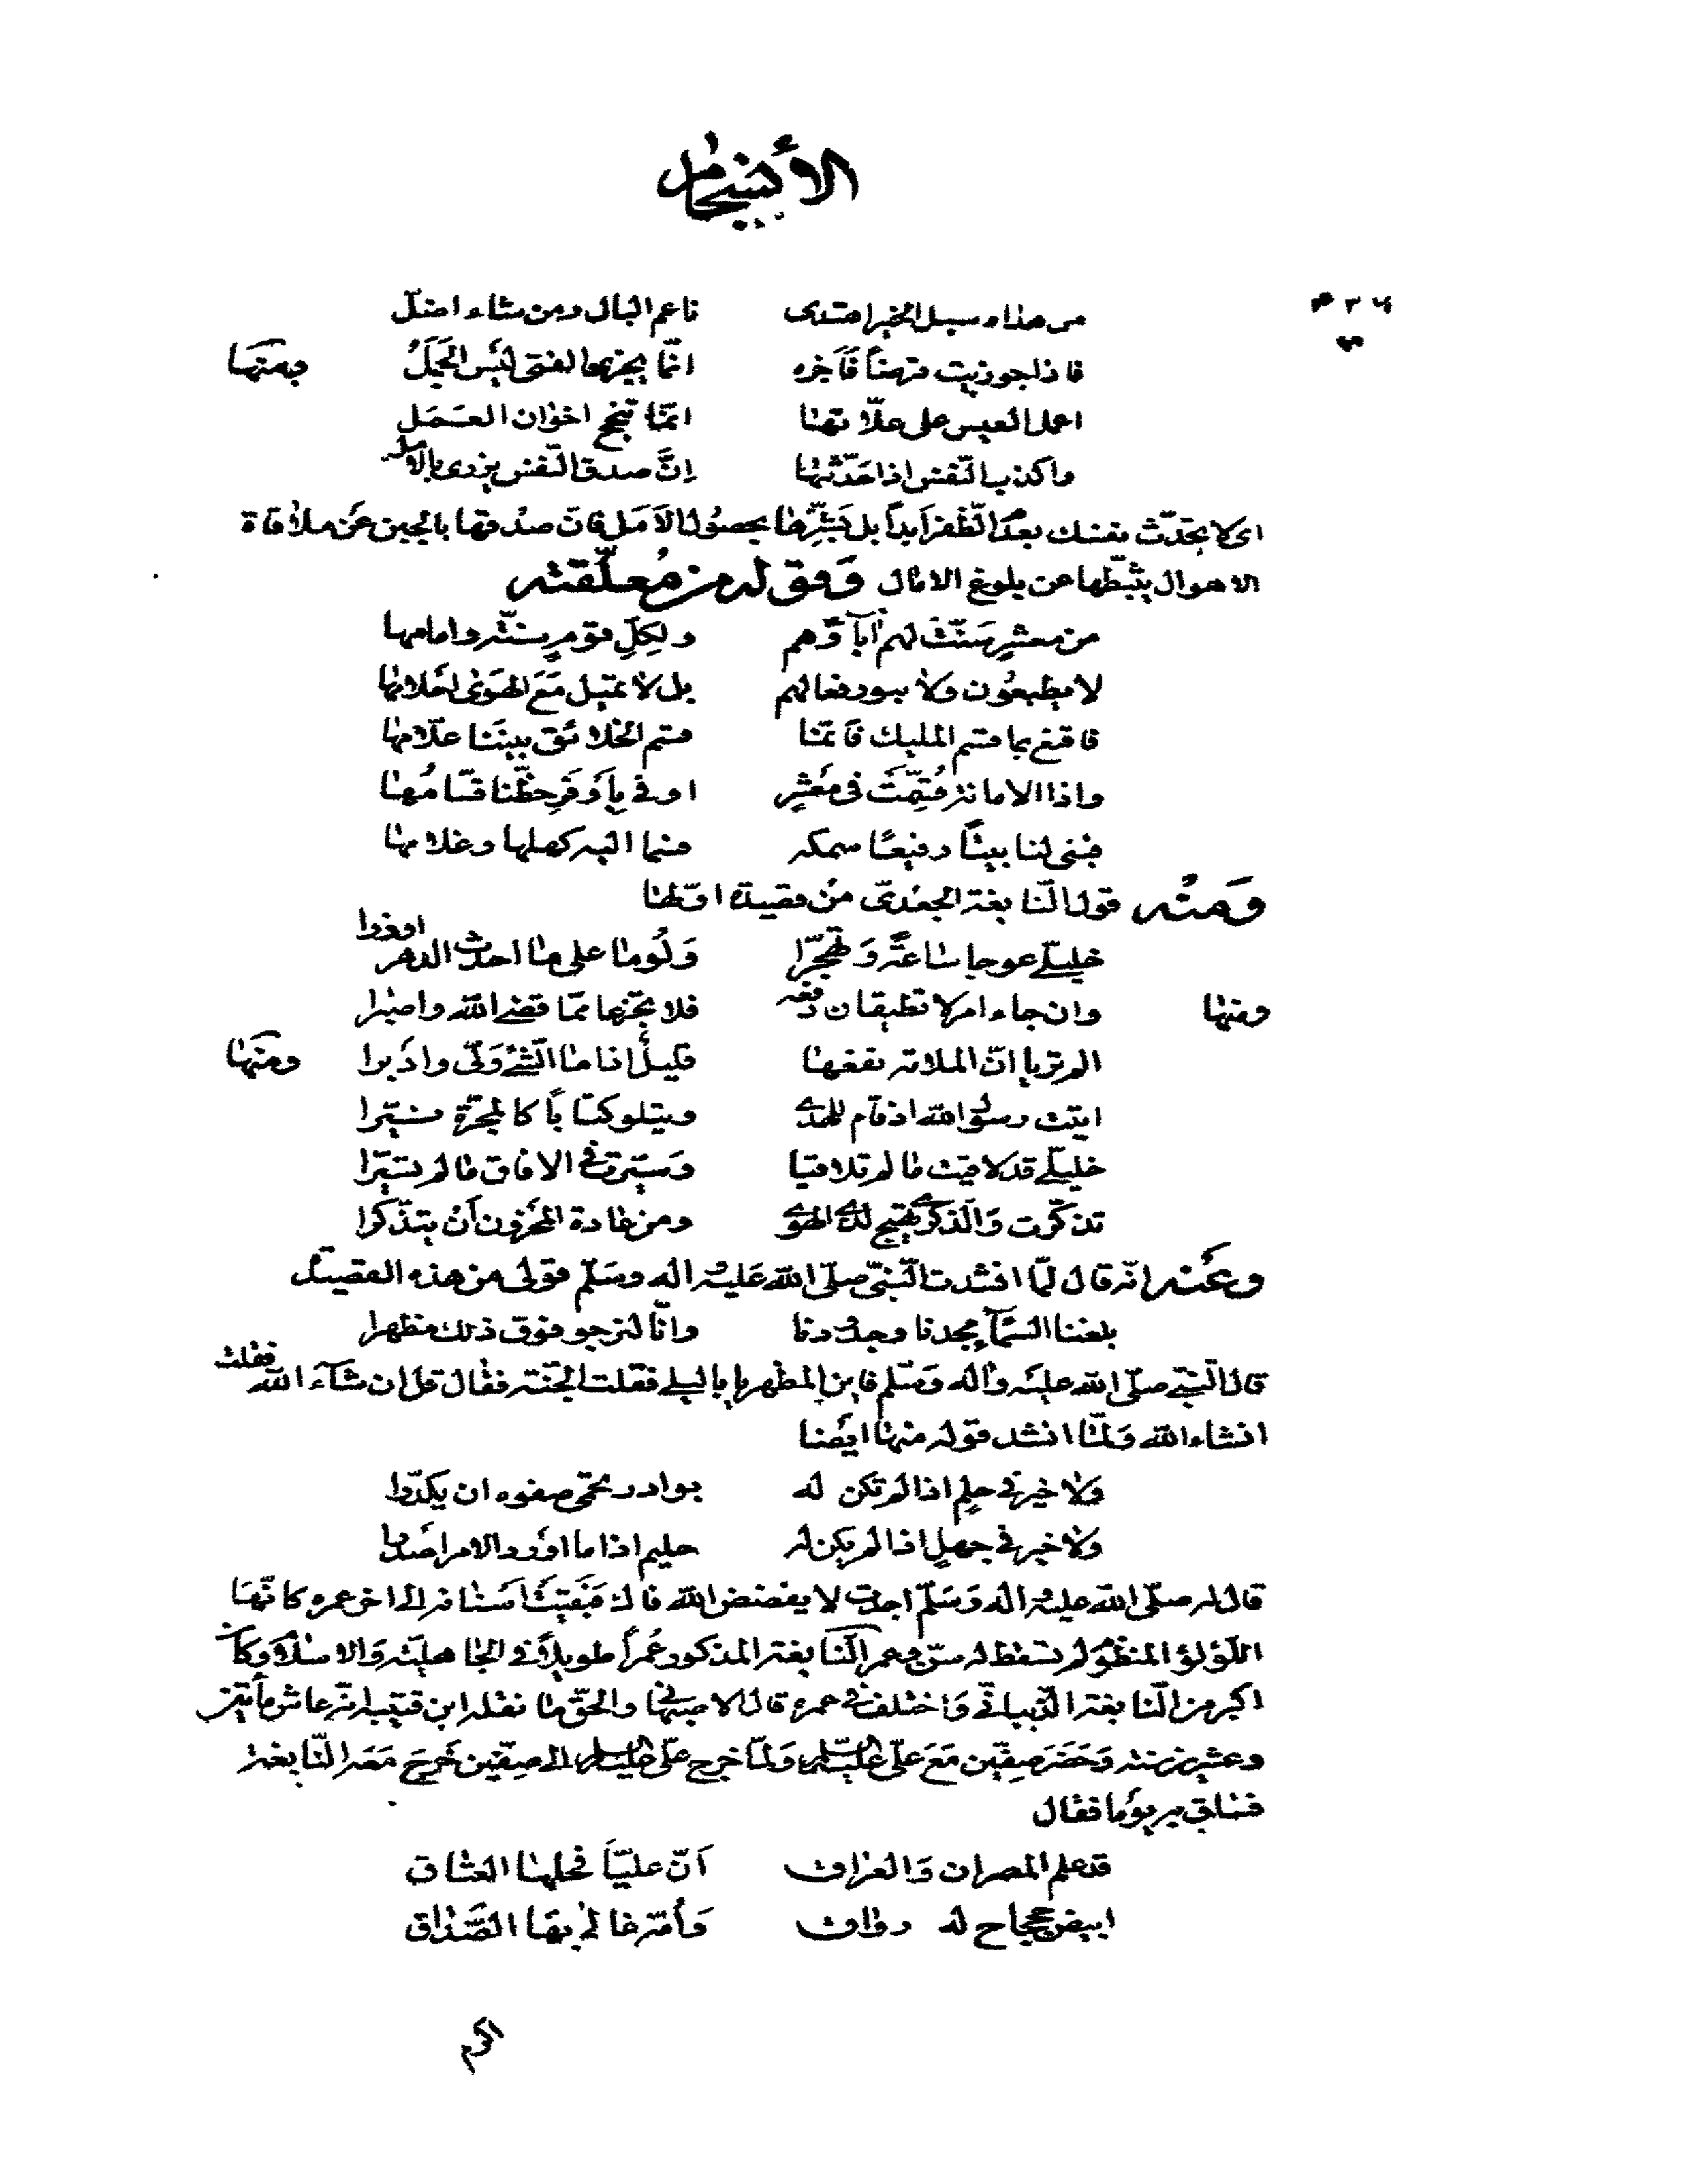 الأنسجام
من هداه سبيل الخير اهتدى ناعم البال ومن شاء اضلّ
فاذا جوزيت قرضاً فَاَجزه انّما يجزى الفتى ليس الجَمَلُ ومنها
اعمل العيس على علّاتها انمّا تنجح اخوان العَمَل
واكذب النّفس اذا حدّثتها اِنَّ صدق النّفس يزرى بالامل
اى لا تحدّث نفسك بعدم الظّفر اَبداً بل بَشِّرها بحصول الاَمَل فانّ صدقها بالجبن عَن ملاقاة
الاهوال يثبّطها عن بلوغ الامال وَقوله من مُعلّقته
من معشرٍ سَنّت لهم اباؤهم ولِكلّ قومٍ سنّة وامامها
لا يطبعُون ولا يبور فعالهم بل لا تميل مَعَ الهَوى احلامها
فاقنع بما قسم المليك فَانّما قسم الخلائق بيننَا علّامها
واذا الامانة قُسِّمَت فى مَعْشرٍ اوفى بِاَوفَرِ حظّنا قسّامُها
فبنى لنا بيتاً رفيعًا سمكه فسما اليه كهلها وغلامها
وَمنْه قول النّابغة الجعْدىّ من قصيدة اوّلها
خليلَىّ عوجا ساعةً وَتهجّرا وَلُوما على ما احدث الدهر اوذرا
ومنها وان جاء امر لا تطيقان دفعه فلا تجزعا ممّا قضى اللّه واصبرا
الم تريا انّ الملامة نفعها قليلٌ اذا ما الشّىء ولّى وادْبرا ومنها
اتيت رسول اللّه اذ قام بالهدى ويتلو كتاباً كالمجرّة نيّرا
خليلَىّ قد لاقيت ما لم تلاقيا وَسيّرت فى الافاق ما لم يسيّرا
تذكّرت وَالذكرى تهيج لذى الهوى ومن عادة المحزون اَن يتذكّرا
وعَنه انّه قال لمّا انشدت النّبىّ صلّى اللّه عَليه واله وسَلّم قولى من هذه القصيدة
بلغنا السّمآء مجدنا وجدودنا وانّا لنرجو فوق ذلك مظهرا
قال النّبىّ صلّى اللّه عليه واله وَسَلّم فاين المظهر يا باليلى فقلت الجنّة فقال قل ان شآء اللّه فقلت
انشاء اللّه وَلمّا انشد قوله منها ايضا
ولا خير فى حلمٍ اذا لم تكن له بوادر تحمى صفوه ان يكدّرا
ولا خير فى جهلٍ اذا لم يكن له حليم اذا ما اورد الامر اصْدرا
قال له صلّى اللّه عليه واله وَسَلّم اجدت لا يفضض اللّه فاك فبَقيت اسنانه الى اخر عمره كانّها
اللّؤلؤ المنظوم لم تسقط له سنّ وعمر النّابغة المذكور عُمراً طويلاً فى الجاهليّة وَالاسلام وَكان
اكبر من النّابغة الذّبيانى وَاختلف فى عمره قال الاصبهانى والحقّ ما نقله ابن قتيبة انّه عاش مأتين
وعشرين سنه وَحَضَرَ صِفّين مَعَ علىّ عليه السلم وَلمّا خرج علىّ عليه السلم الى صِفّين خَرجَ مَعه النّابغة
فساق به يوْما فقال
قد علم المصران وَالعراق اَنّ عليّاً فحلها العتاق
ابيض جحجاح له رواق وَأمّه غالى بهَا الصَّدَاق
اكرم